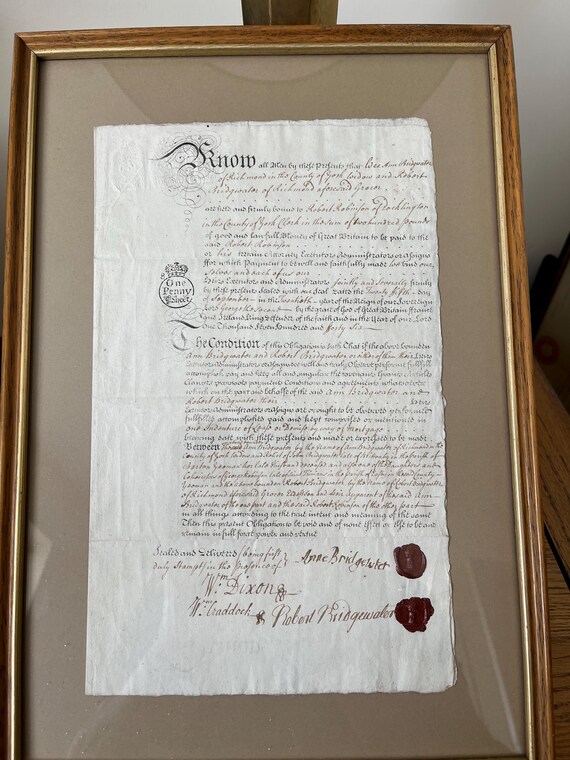 Know all Men by these Presents that We Ann Bridgwater
of Richmond in the County of York Widow and Robert
Bridgwater of Richmond aforesaid Grocer
are held and firmly bound to Robert Robinson of
in the County of York Clerk in the Sum of two hundred pounds
of good and lawfull Money of Great Britain to be paid to the
said Robert Robinson
or his certain Attorney Executors Administrators or Assigns
for which Payment to be well and faithfully made we bind our
Selves and each of us our
One
Penny
Sheet
Heirs Executors and Administrators Jointly and Severally firmly
by these presents Sealed with our Seal Dated the Twenty fifth Day
of September in the Twentieth year of the Reign of our Sovereign
Lord George the Second by the grace of God of Great Britain france
and Ireland King Defender of the faith and in the Year of our Lord
One Thousand Seven Hundred and forty Six
The Condition of this Obligation is Such That if the above bounden
Ann Bridgwater and Robert Bridgwater or either of them their Heirs
Executors Administrators or Assigns do well and truly Observe perform fullfill
accomplish pay and keep all and singular the Covenants Grants Articles
Clauses provisoes payments Conditions and agreements whatsoever
which on the part and behalfe of the said Ann Bridgwater and
Robert Bridgwater their Heirs
Executors Administrators or Assigns are or ought to be observed performed
fullfilled accomplished paid and kept comprised or mentioned in
one Indenture of Lease or Demise by way of Mortgage
bearing date with these presents and made or expressed to be made
Between the said Ann Bridgwater by the name of Ann Bridgwater of Richmond in the
County of York Widow and Relict of John Bridgwater late of in the parish of
Yeoman her late Husband deceased and
of in the parish of in the said County
Yeoman and the above bounden Robert Bridgwater by the Name of Robert Bridgwater
of Richmond aforesaid Grocer Eldest Son and Heir apparent of the said Ann
Bridgwater of the one part and the said Robert Robinson of the other part
in all things according to the true intent and meaning of the same
Then this present Obligation to be void and of none Effect or Else to be and
remain in full force power and virtue
Sealed and Delivered (being first
duly Stampt) in the Presence of
Anne Bridgewater
Wm Dixon
Wm Craddock
Robert Bridgewater